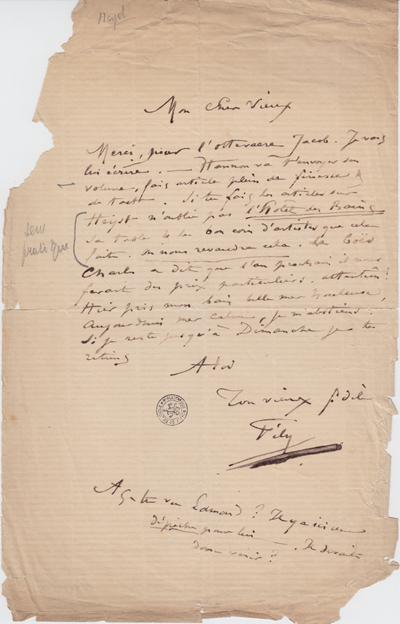 Heyst
Mon cher Vieux
Merci, pour l'ottevaere Jacob. Je vais
lui écrire. — Hannon va t'envoyer son
volume, fais article plein de finesse &
de tact. Si tu fais les articles sur
Heyst n'oublie pas l'Hotel des Bains
sa table & le bon coin d'artistes que cela
fait. nous revaudra cela. Le
Charles a dit que l'an prochain il nous
ferait des prix particuliers. attention!
Hier pris mon bain belle mer houleuse,
Aujourd'hui mer calme, je m'abstiens.
Si je reste jusqu'à Dimanche je te
sens
pratique
A toi
Ton vieux fidèle
Fély
A-t-on vu Edmond? Il y a ici une
dépêche pour lui — Il devait
donc venir?